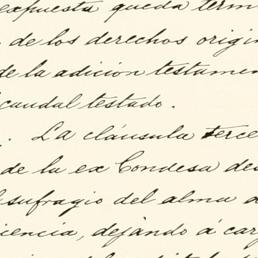 expuesta queda term
de los derechos origin
de la adicion testamen
caudal testado.
. La cláusula terce
de la ex Condesa de
sufragio del alma d
icencia, dejando á car